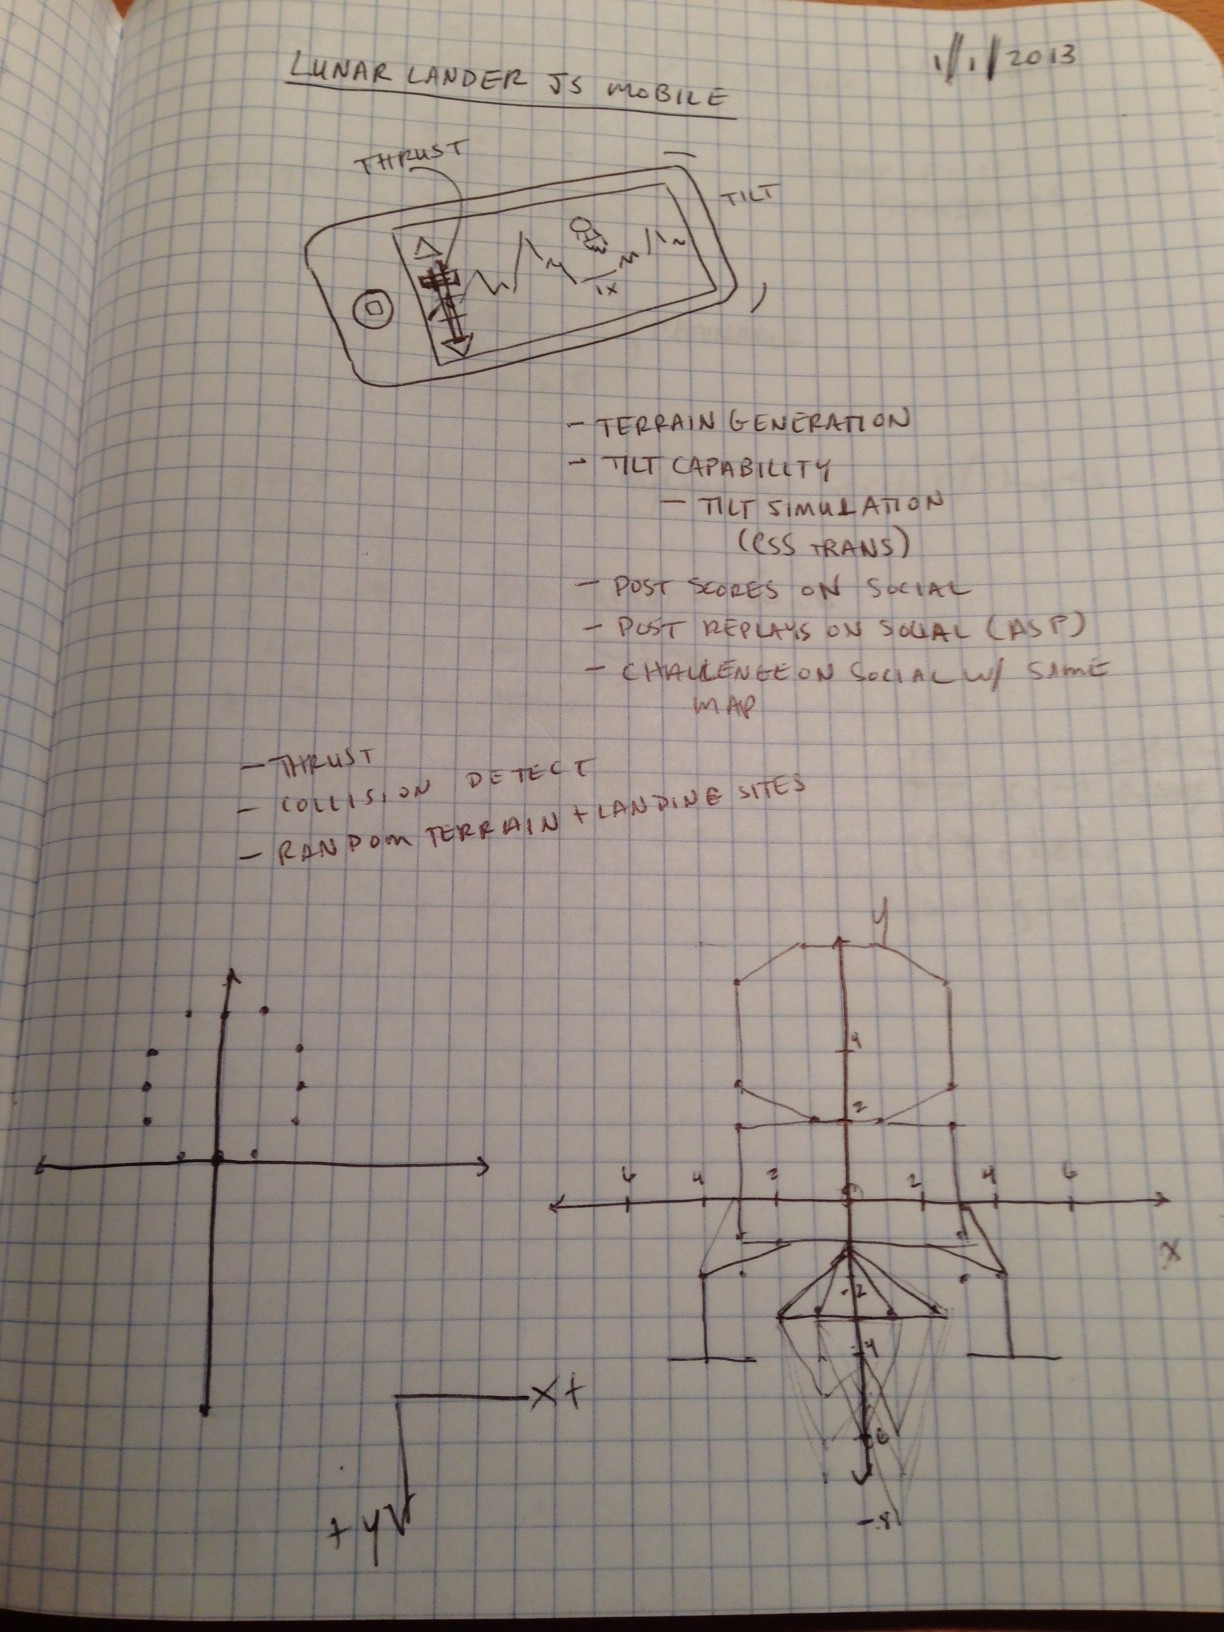 LUNAR LANDER JS MOBILE
1/1/2013
THRUST
TILT
1X
- TERRAIN GENERATION
- TILT CAPABILITY
- TILT SIMULATION
(CSS TRANS)
- POST SCORES ON SOCIAL
- POST REPLAYS ON SOCIAL (ASP)
- CHALLENGE ON SOCIAL W/ SAME
MAP
- THRUST
- COLLISION DETECT
- RANDOM TERRAIN + LANDING SITES
y
4
2
6 4 2 0 2 4 6
x
-2
-4
6
-8
X+
+y